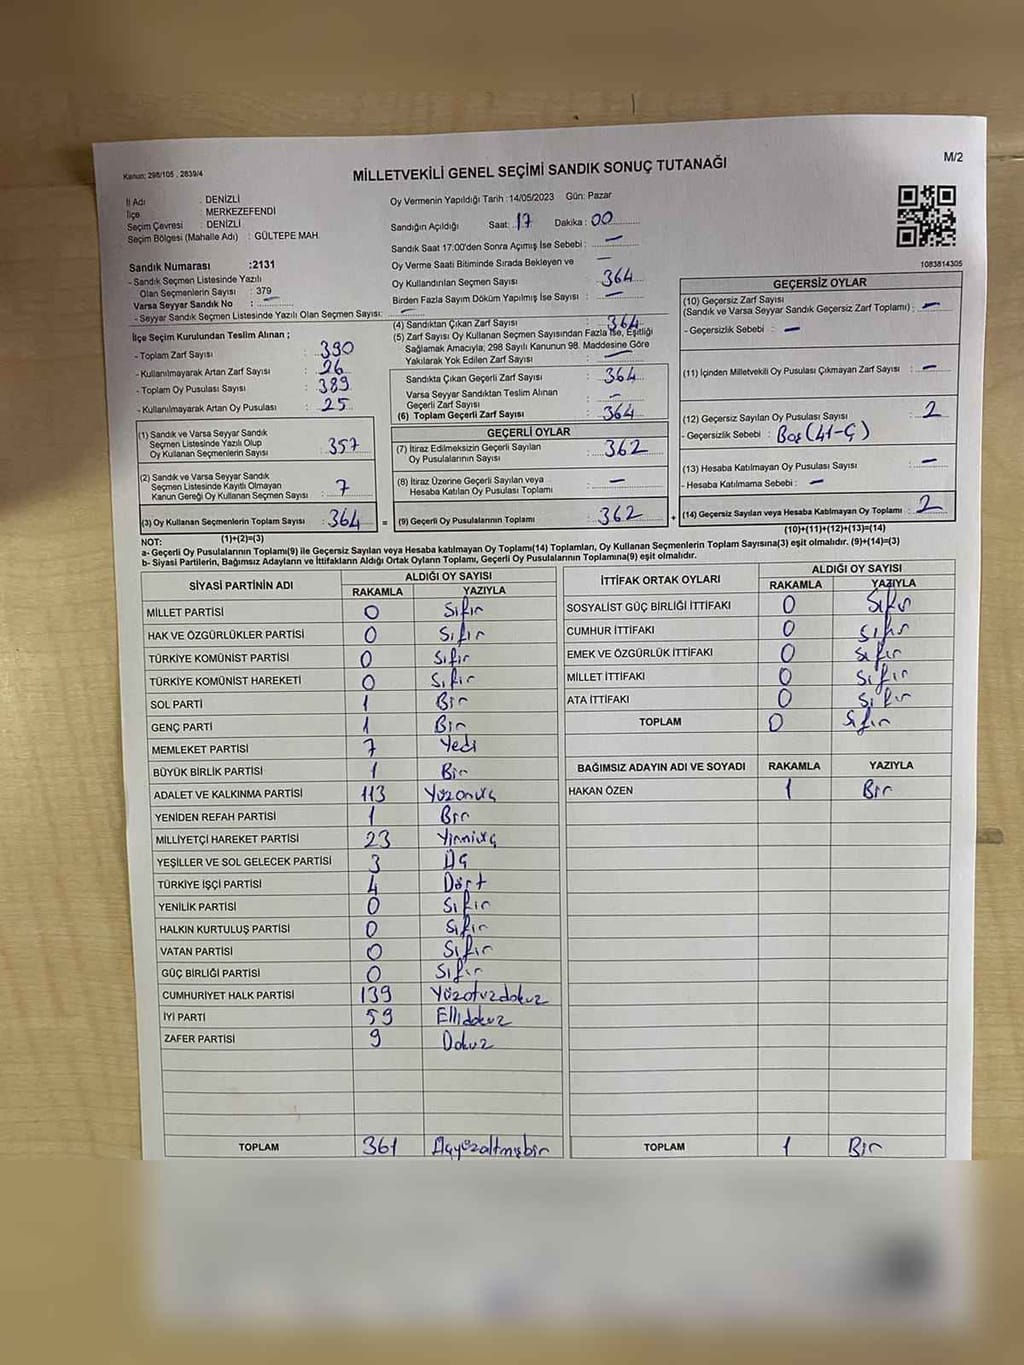 Kanun: 298/105 , 2839/4
MİLLETVEKİLİ GENEL SEÇİMİ SANDIK SONUÇ TUTANAĞI
M/2
İl Adı : DENİZLİ
İlçe : MERKEZEFENDİ
Seçim Çevresi : DENİZLİ
Seçim Bölgesi (Mahalle Adı) : GÜLTEPE MAH.
Oy Vermenin Yapıldığı Tarih :14/05/2023 Gün: Pazar
Sandığın Açıldığı Saat: 17 Dakika : 00
Sandık Saat 17:00'den Sonra Açımış İse Sebebi : —
Oy Verme Saati Bitiminde Sırada Bekleyen ve —
Oy Kullandırılan Seçmen Sayısı : 364
Birden Fazla Sayım Döküm Yapılmış İse Sayısı : —
1083814305
Sandık Numarası :2131
- Sandık Seçmen Listesinde Yazılı
Olan Seçmenlerin Sayısı : 379
Varsa Seyyar Sandık No : —
- Seyyar Sandık Seçmen Listesinde Yazılı Olan Seçmen Sayısı: —
İlçe Seçim Kurulundan Teslim Alınan ;
- Toplam Zarf Sayısı : 390
- Kullanılmayarak Artan Zarf Sayısı : 26
- Toplam Oy Pusulası Sayısı : 389
- Kullanılmayarak Artan Oy Pusulası : 25
(1) Sandık ve Varsa Seyyar Sandık
Seçmen Listesinde Yazılı Olup
Oy Kullanan Seçmenlerin Sayısı : 357
(2) Sandık ve Varsa Seyyar Sandık
Seçmen Listesinde Kayıtlı Olmayan
Kanun Gereği Oy Kullanan Seçmen Sayısı : 7
(3) Oy Kullanan Seçmenlerin Toplam Sayısı : 364 =
(1)+(2)=(3)
(4) Sandıktan Çıkan Zarf Sayısı : 364
(5) Zarf Sayısı Oy Kullanan Seçmen Sayısından Fazla İse, Eşitliği
Sağlamak Amacıyla; 298 Sayılı Kanunun 98. Maddesine Göre
Yakılarak Yok Edilen Zarf Sayısı : —
Sandıkta Çıkan Geçerli Zarf Sayısı : 364
Varsa Seyyar Sandıktan Teslim Alınan
Geçerli Zarf Sayısı : —
(6) Toplam Geçerli Zarf Sayısı : 364
GEÇERLİ OYLAR
(7) İtiraz Edilmeksizin Geçerli Sayılan
Oy Pusulalarının Sayısı : 362
(8) İtiraz Üzerine Geçerli Sayılan veya
Hesaba Katılan Oy Pusulası Toplamı : —
(9) Geçerli Oy Pusulalarının Toplamı : 362 +
GEÇERSİZ OYLAR
(10) Geçersiz Zarf Sayısı
(Sandık ve Varsa Seyyar Sandık Geçersiz Zarf Toplamı) : —
- Geçersizlik Sebebi : —
(11) İçinden Milletvekili Oy Pusulası Çıkmayan Zarf Sayısı : —
(12) Geçersiz Sayılan Oy Pusulası Sayısı : 2
- Geçersizlik Sebebi : Boş (41-Ç)
(13) Hesaba Katılmayan Oy Pusulası Sayısı : —
- Hesaba Katılmama Sebebi : —
(14) Geçersiz Sayılan veya Hesaba Katılmayan Oy Toplamı : 2
(10)+(11)+(12)+(13)=(14)
NOT:
a- Geçerli Oy Pusulalarının Toplamı(9) ile Geçersiz Sayılan veya Hesaba katılmayan Oy Toplamı(14) Toplamları, Oy Kullanan Seçmenlerin Toplam Sayısına(3) eşit olmalıdır. (9)+(14)=(3)
b- Siyasi Partilerin, Bağımsız Adayların ve İttifakların Aldığı Ortak Oyların Toplamı, Geçerli Oy Pusulalarının Toplamına(9) eşit olmalıdır.
SİYASİ PARTİNİN ADI ALDIĞI OY SAYISI
RAKAMLA YAZIYLA
MİLLET PARTİSİ 0 Sıfır
HAK VE ÖZGÜRLÜKLER PARTİSİ 0 Sıfır
TÜRKİYE KOMÜNİST PARTİSİ 0 Sıfır
TÜRKİYE KOMÜNİST HAREKETİ 0 Sıfır
SOL PARTİ 1 Bir
GENÇ PARTİ 1 Bir
MEMLEKET PARTİSİ 7 Yedi
BÜYÜK BİRLİK PARTİSİ 1 Bir
ADALET VE KALKINMA PARTİSİ 113 Yüzonüç
YENİDEN REFAH PARTİSİ 1 Bir
MİLLİYETÇİ HAREKET PARTİSİ 23 Yirmiüç
YEŞİLLER VE SOL GELECEK PARTİSİ 3 Üç
TÜRKİYE İŞÇİ PARTİSİ 4 Dört
YENİLİK PARTİSİ 0 Sıfır
HALKIN KURTULUŞ PARTİSİ 0 Sıfır
VATAN PARTİSİ 0 Sıfır
GÜÇ BİRLİĞİ PARTİSİ 0 Sıfır
CUMHURİYET HALK PARTİSİ 139 Yüzotuzdokuz
İYİ PARTİ 59 Ellidokuz
ZAFER PARTİSİ 9 Dokuz
TOPLAM 361 Üçyüzaltmışbir
İTTİFAK ORTAK OYLARI ALDIĞI OY SAYISI
RAKAMLA YAZIYLA
SOSYALİST GÜÇ BİRLİĞİ İTTİFAKI 0 Sıfır
CUMHUR İTTİFAKI 0 Sıfır
EMEK VE ÖZGÜRLÜK İTTİFAKI 0 Sıfır
MİLLET İTTİFAKI 0 Sıfır
ATA İTTİFAKI 0 Sıfır
TOPLAM 0 Sıfır
BAĞIMSIZ ADAYIN ADI VE SOYADI RAKAMLA YAZIYLA
HAKAN ÖZEN 1 Bir
TOPLAM 1 Bir